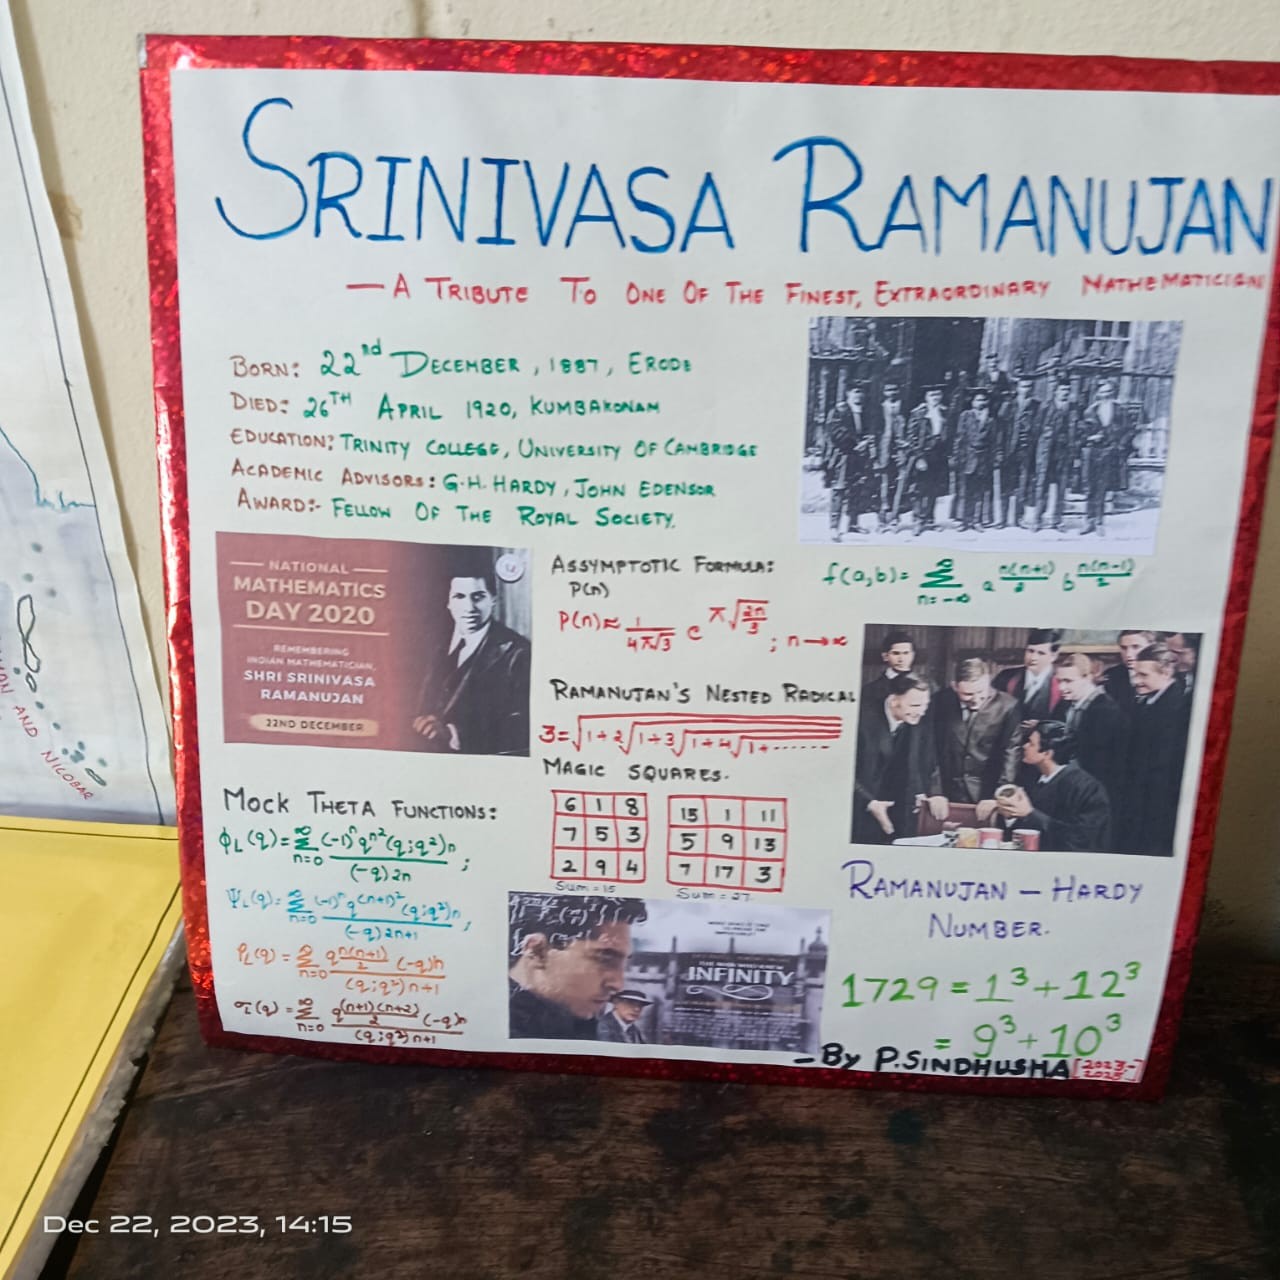 SRINIVASA RAMANUJAN
— A TRIBUTE TO ONE OF THE FINEST, EXTRAORDINARY MATHEMATICIAN
BORN: 22nd DECEMBER, 1887, ERODE
DIED: 26TH APRIL 1920, KUMBAKONAM
EDUCATION: TRINITY COLLEGE, UNIVERSITY OF CAMBRIDGE
ACADEMIC ADVISORS: G.H. HARDY, JOHN EDENSOR
AWARD:- FELLOW OF THE ROYAL SOCIETY.
— NATIONAL —
MATHEMATICS
DAY 2020
REMEMBERING
INDIAN MATHEMATICIAN,
SHRI SRINIVASA
RAMANUJAN
22ND DECEMBER
ASSYMPTOTIC FORMULA:
P(n)
P(n) ≈ 1/4π√3 e^π√(2n/3) ; n→∞
f(a,b) = ∞Σn=-∞ a^n(n+1)/2 b^n(n-1)/2
RAMANUJAN'S NESTED RADICAL
3=√1+2√1+3√1+4√1+......
MAGIC SQUARES.
6 1 8
7 5 3
2 9 4
Sum = 15
15 1 11
5 9 13
7 17 3
Sum = 27
MOCK THETA FUNCTIONS:
φL(q) = ∞Σn=0 (-1)^n q^n² (q;q²)n / (-q)2n ;
ΨL(q) = ∞Σn=0 (-1)^n q^(n+1)² (q;q²)n / (-q)2n+1 ,
PL(q) = ∞Σn=0 q^n(n+1)/2 (-q)n / (q;q²)n+1
σL(q) = ∞Σn=0 q^(n+1)(n+2)/2 (-q)n / (q;q²)n+1
THE MAN WHO KNEW
INFINITY
RAMANUJAN – HARDY
NUMBER.
1729 = 1³ + 12³
= 9³ + 10³
– By P. SINDHUSHA [2023-2025]
MAN AND NICOBAR
Dec 22, 2023, 14:15